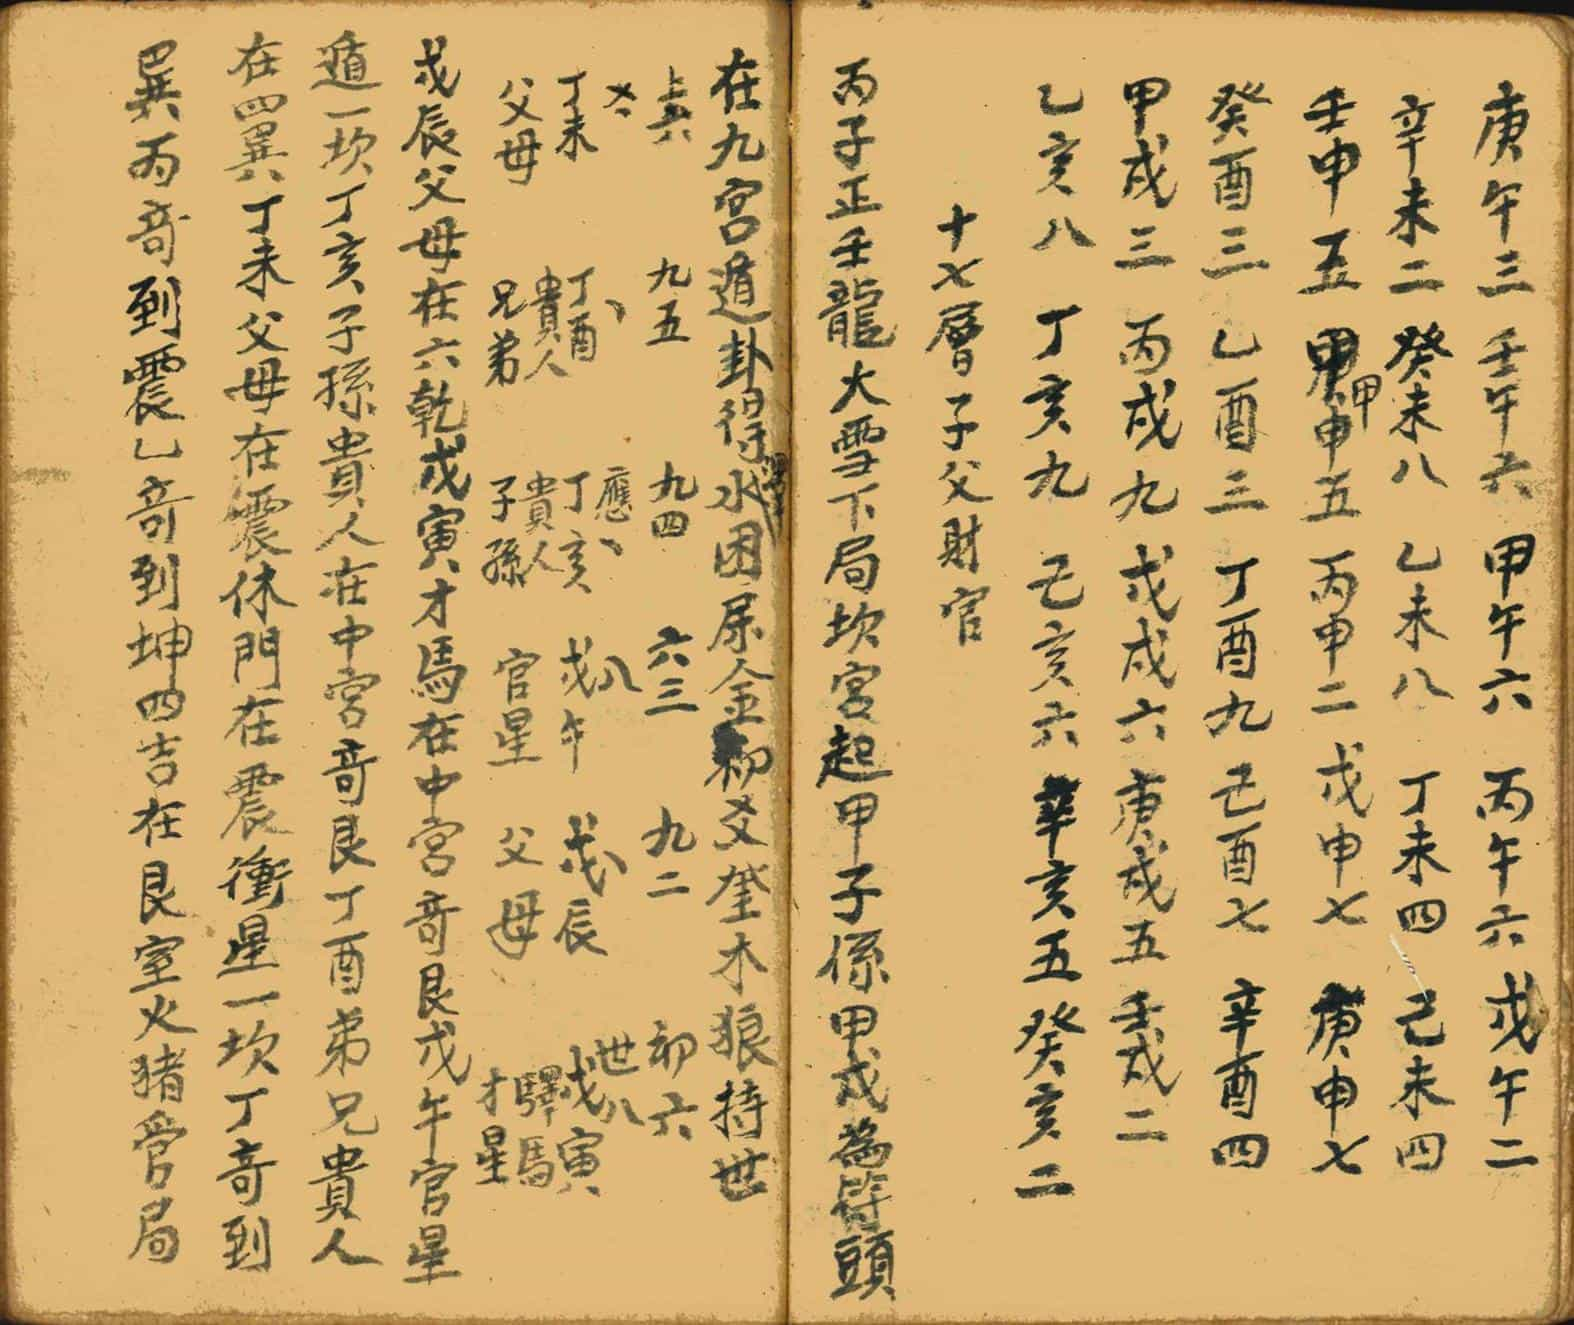 庚午三 壬午六 甲午六 丙午六 戊午二
辛未二 癸未八 乙未八 丁未四 己未四
壬申五 甲申五 丙申二 戊申七 庚申七
癸酉三 乙酉三 丁酉九 己酉七 辛酉四
甲戌三 丙戌九 戊戌六 庚戌五 壬戌二
乙亥八 丁亥九 己亥六 辛亥五 癸亥二
十七層子父財官
丙子正壬龍大雪下局坎宮起甲子係甲戌為符頭
在九宮遁卦得水困屬金初爻奎木狼持世
上六 九五 九四 六三 九二 初六
丁未 丁酉 應丁亥 戊午 戊辰 世戊寅
父母 貴人兄弟 貴人子孫 官星 父母 驛馬才星
戊辰父母在六乾戊寅才馬在中宮奇艮戊午官星
遁一坎丁亥子孫貴人在中宮奇艮丁酉弟兄貴人
在四巽丁未父母在震休門在震衝星一坎丁奇到
巽丙奇到震乙奇到坤四吉在艮室火猪管局